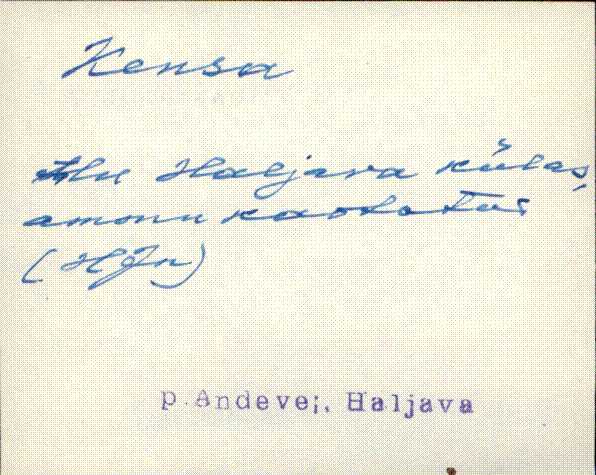 Kensa
talu Haljava külas,
ammu kaotatus
(HJn)
p. Andevei, Haljava